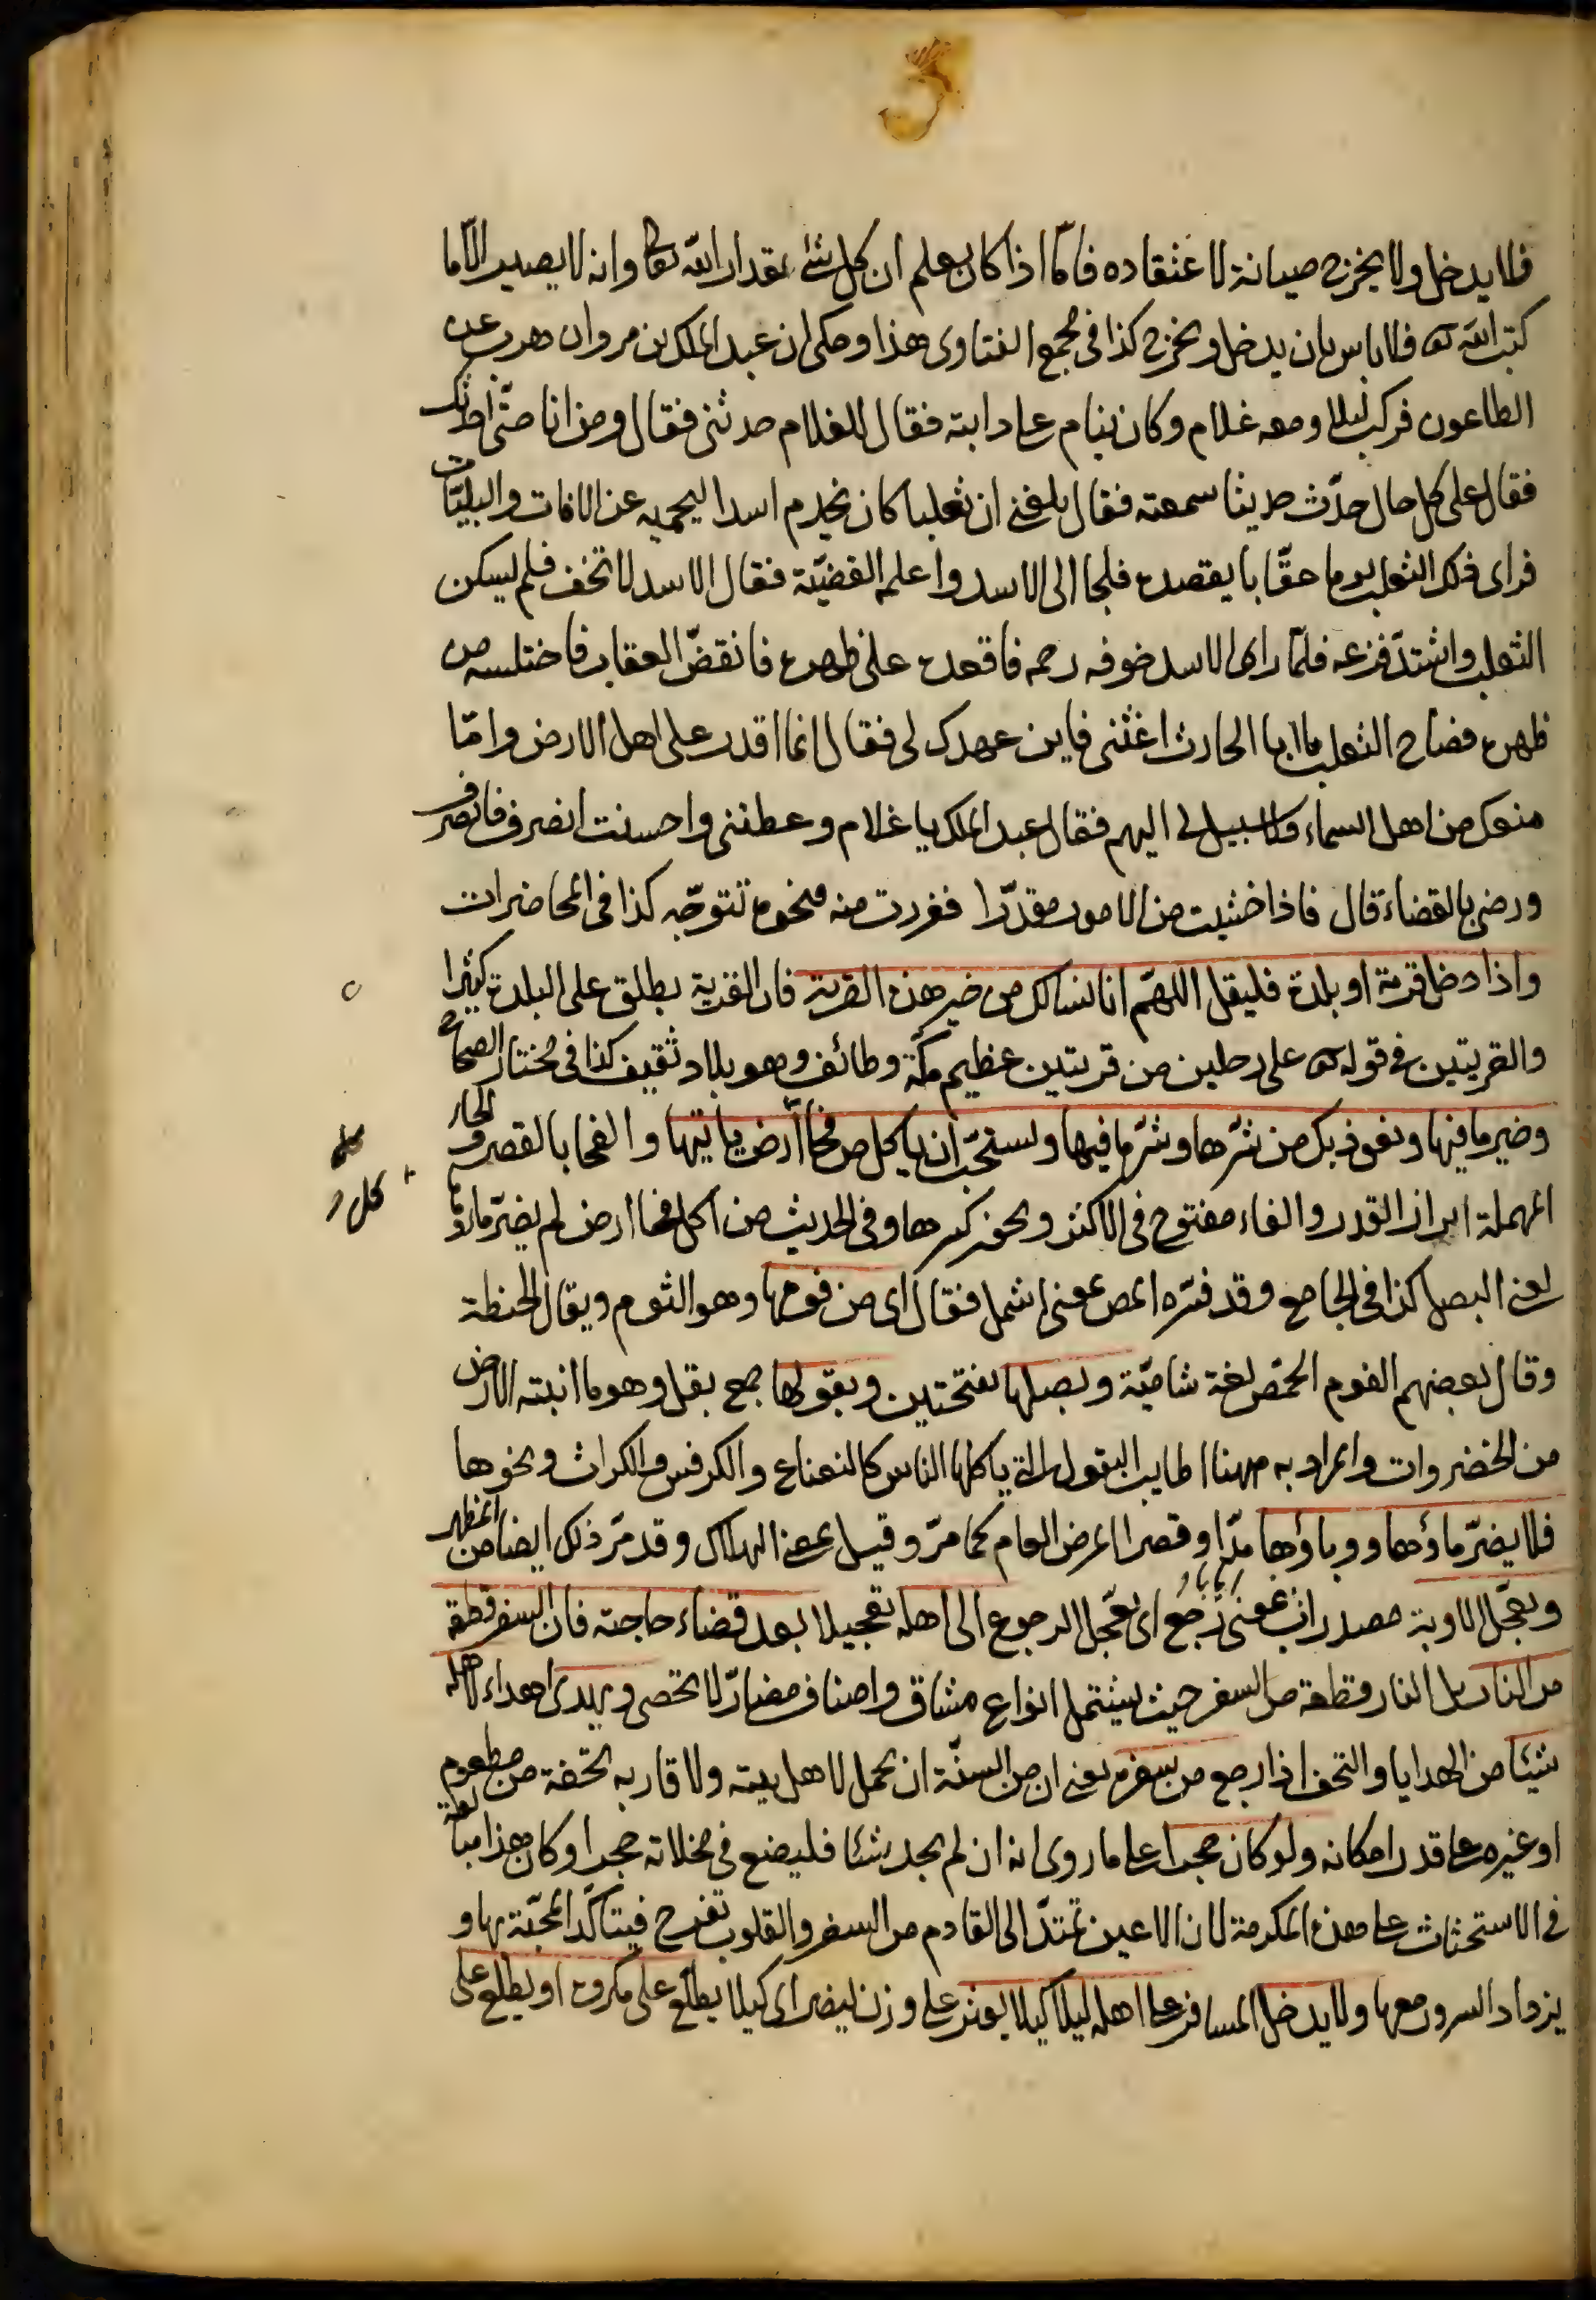 فلا يدخل ولا يخرج صيانة لاعتقاده فامّا اذا كان يعلم ان كل شئ بمقدار الله تعالى وانه لا يصيبه الّا ما
كتب الله له فلا باس بان يدخل ويخرج كذا فى مجمع الفتاوى هذا وحكى ان عبد الملك بن مروان هرب عن
الطاعون فركب ليلا ومعه غلام وكان ينام على دابته فقال للغلام حدثنى فقال ومن انا حتّى احدّثك
فقال على كل حال حدّث حديثا سمعته فقال بلغنى ان ثعلبا كان يخدم اسدا ليحميه عن الافات والبليّات
فراى ذلك الثعلب يوما عقّابا يقصده فلجا الى الاسد واعلمه القضيّة فقال الاسد لا تخف فلم يسكن
الثعلب واشتدّ فزعه فلمّا راى الاسد خوفه رحمه فاقعده على ظهره فانقضّ العقاب فاختلسه من
ظهره فصاح الثعلب يا ابا الحارث اغثنى فاين عهدك لى فقال انما اقدر على اهل الارض وامّا
منعك من اهل السماء فلا سبيل لى اليهم فقال عبد الملك يا غلام وعظتنى واحسنت انصرف فانصرف
ورضى بالقضاء قال فاذا خشيت من الامور مقدّرا ففررت منه فنحوه تتوجّه كذا فى المحاضرات
واذا دخل قرية او بلدة فليقل اللهمّ انا نسالك من خير هذه القرية فان القرية يطلق على البلدة كثيرا
والقريتين فى قوله تعالى على رجلين من قريتين عظيم مكّة وطائف وهو بلاد ثقيف كذا فى مختار الصحاح
وخير ما فيها ونعوذ بك من شرّها وشرّ ما فيها ويستحبّ ان ياكل من فحا ارض ياتيها والفحا بالقصر والحاء
المهملة ابزار القدر والفاء مفتوح فى الاكثر ويجوز كسرها وفى الحديث من اكل فحا ارض لم يضرّه ماؤها
يعنى البصل كذا فى الجامع وقد فسّره المص بمعنى اشمل فقال اى من فومها وهو الثوم ويقال الحنطة
وقال بعضهم الفوم الحمّص لغة شاميّة وبصلها بفتحتين وبقولها جمع بقل وهو ما انبته الارض
من الخضروات والمراد به ههنا اطايب البقول التى ياكلها الناس كالنعناع والكرفس والكراث ونحوها
فلا يضرّ ماؤها ووباؤها مدّا وقصرا المرض العام كما مرّ وقيل بمعنى الهلاك وقد مرّ ذلك ايضا من المظهر
ويعجّل الاوبة مصدر اب بمعنى رجع اى يعجّل الرجوع الى اهله تعجيلا بعد قضاء حاجته فان السفر قطعة
من النار بل النار قطعة من السفر حيث يشتمل انواع مشاق واصناف مضارّ لا تحصى ويهدى اهداء لاهله
شيئا من الهدايا والتحف اذا رجع من سفره يعنى ان من السنّة ان يحمل لاهل بيته ولاقاربه تحفة من مطعوم
او غيره على قدر امكانه ولو كان حجرا على ما روى انه ان لم يجد شئا فليضع فى مخلاته حجرا وكان هذا مبالغة
فى الاستحثاث على هذه المكرمة لان الاعين تمتدّ الى القادم من السفر والقلوب تفرح فيتاكّد المحبّة بها و
يزداد السرور معها ولا يدخل المسافر على اهله ليلا كيلا يعثر على وزن ينصر اى كيلا يطلّع على مكروه او يطلع على